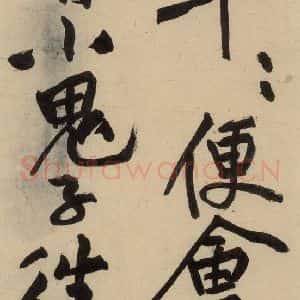 便會
小鬼子往
Shufawang.CN